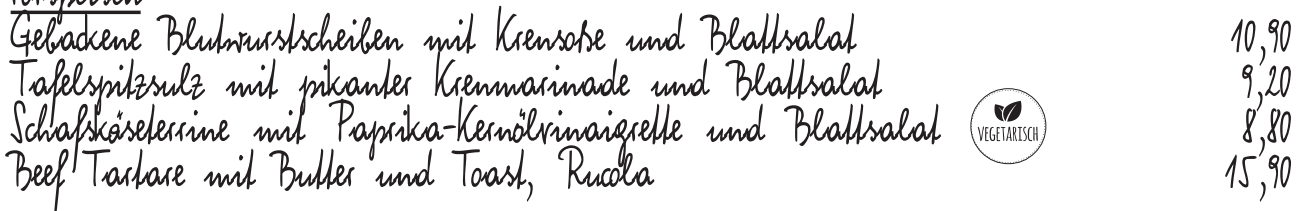 Vorspeisen
Gebackene Blutwurstscheiben mit Krensoße und Blattsalat 10,90
Tafelspitzsulz mit pikanter Krenmarinade und Blattsalat 9,20
Schafskäseterrine mit Paprika-Kernölvinaigrette und Blattsalat VEGETARISCH 8,80
Beef Tartare mit Butter und Toast, Rucola 15,90